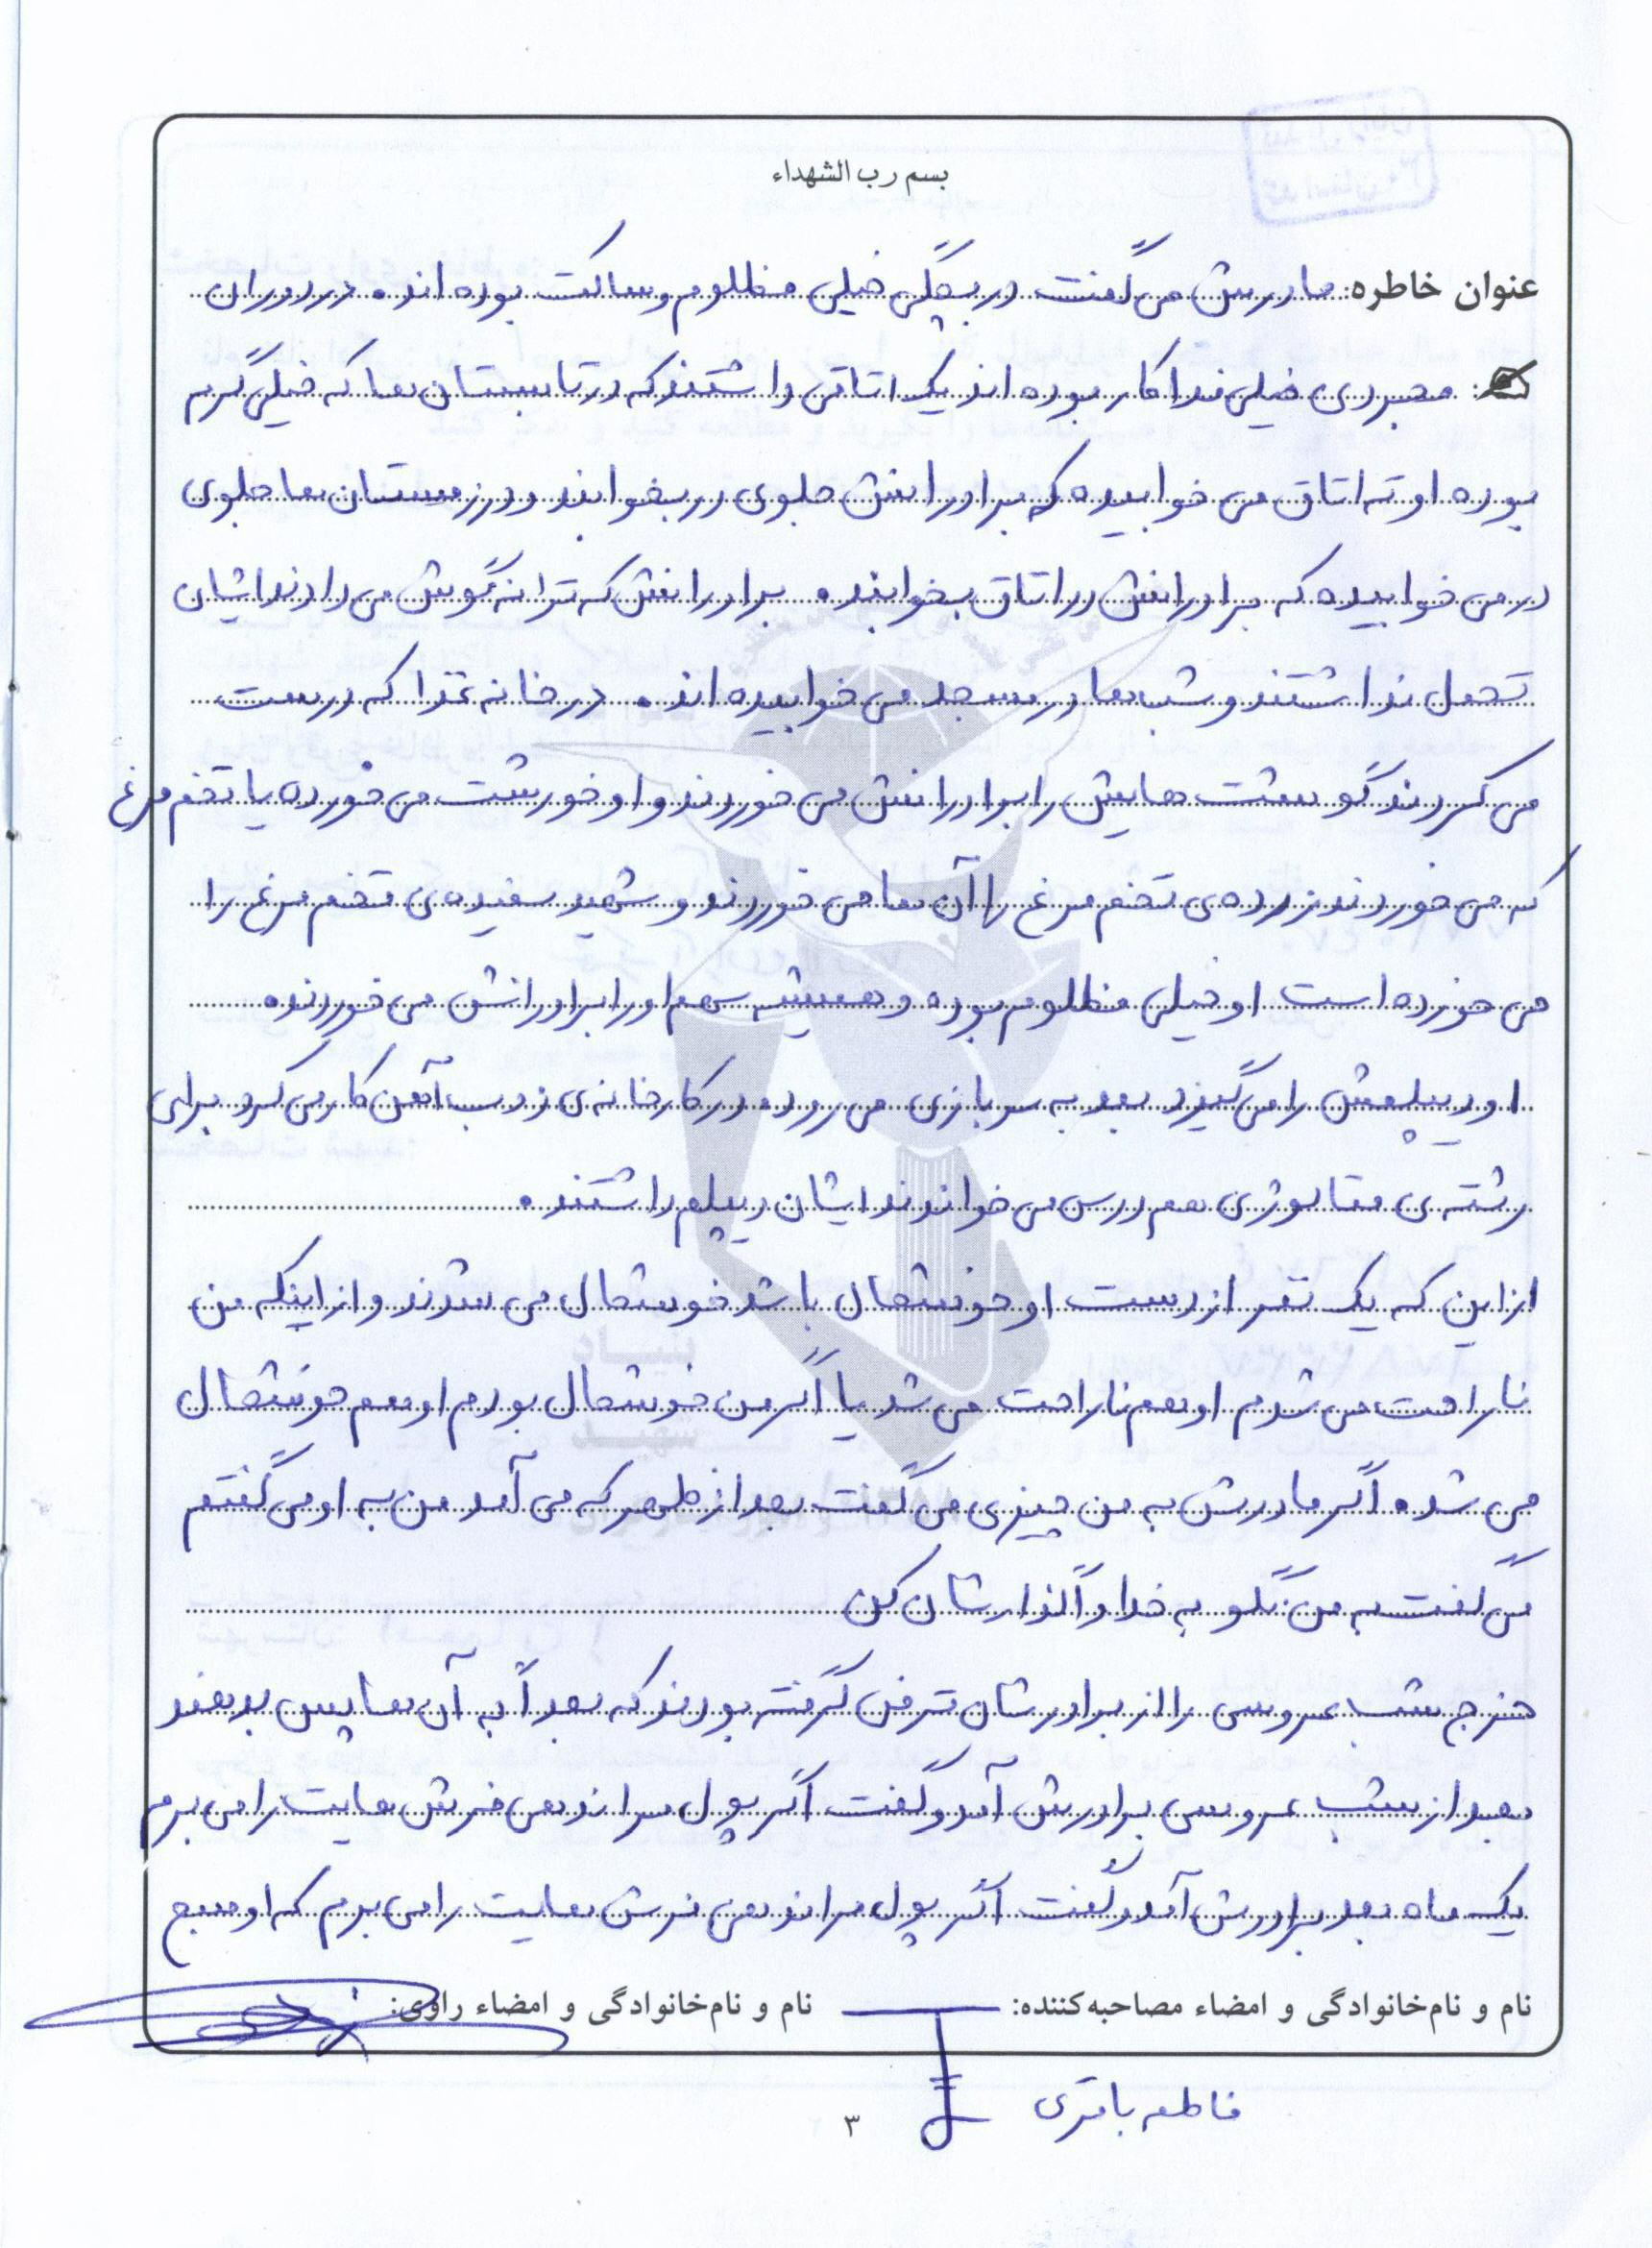 بسم رب الشهداء
عنوان خاطره: مادرش می گفت در بچگی خیلی مظلوم و ساکت بوده اند. در دوران
مجردی خیلی فداکار بوده اند یک اتاقی داشتند که در تابستان ها که خیلی گرم
بوده او ته اتاق می خوابیده که برادرانش جلوی در بخوابند و در زمستان ها جلوی
در می خوابیده که برادرانش در اتاق بخوابند. برادرانش که ترانه گوش می دادند ایشان
تحمل نداشتند و شب ها در مسجد می خوابیده اند. در خانه غذا که درست
می کردند گوشت هایش را برادرانش می خوردند و او خورشت می خورده یا تخم مرغ
که می خوردند زرده ی تخم مرغ را آن ها می خوردند و شهید سفیده ی تخم مرغ را
می خورده است او خیلی مظلوم بوده و همیشه سهم او را برادرانش می خوردند.
او دیپلمش را می گیرد بعد به سربازی می رود. در کارخانه ی ذوب آهن کار می کرد برای
رشته ی متالوژی هم درس می خواندند ایشان دیپلم داشتند.
از این که یک نفر از دست او خوشحال باشد خوشحال می شدند و از اینکه من
ناراحت می شدم او هم ناراحت می شد یا اگر من خوشحال بودم او هم خوشحال
می شد. اگر مادرش به من چیزی می گفت بعد از ظهر که می آمد من به او می گفتم
می گفت به من نگو به خدا واگذارشان کن
خرج شب عروسی را از برادرشان قرض گرفته بودند که بعداً به آن ها پس بدهند
بعد از شب عروسی برادرش آمد و گفت اگر پول مرا ندهی فرش هایت را می برم
یک ماه بعد برادرش آمد و گفت اگر پول مرا ندهی فرش هایت را می برم که او صبح
نام و نام خانوادگی و امضاء مصاحبه کننده: نام و نام خانوادگی و امضاء راوی:
فاطمه باقری
۳